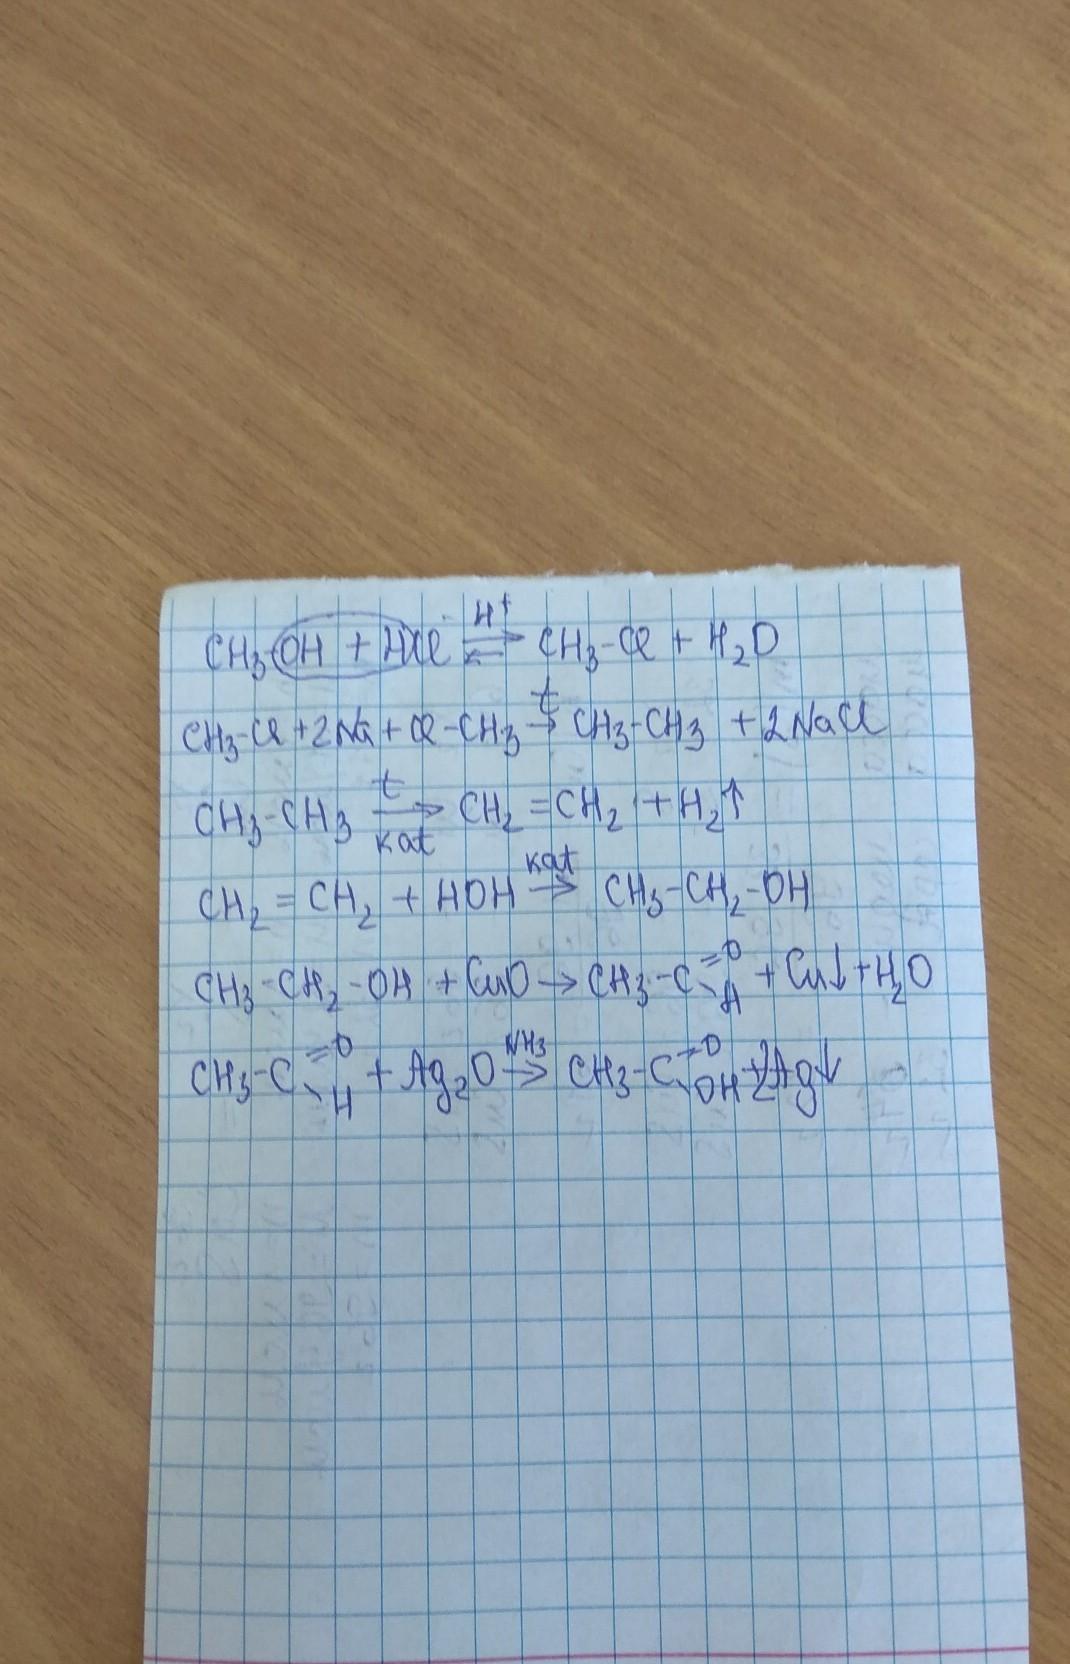 CH₃-OH + HCl ⇌ H⁺ CH₃-Cl + H₂O
CH₃-Cl + 2Na + Cl-CH₃ →t CH₃-CH₃ + 2NaCl
CH₃-CH₃ →t кат CH₂=CH₂ + H₂↑
CH₂=CH₂ + HOH →кат CH₃-CH₂-OH
CH₃-CH₂-OH + CuO → CH₃-C=O-H + Cu↓ + H₂O
CH₃-C=O-H + Ag₂O →NH₃ CH₃-C=O-OH + 2Ag↓